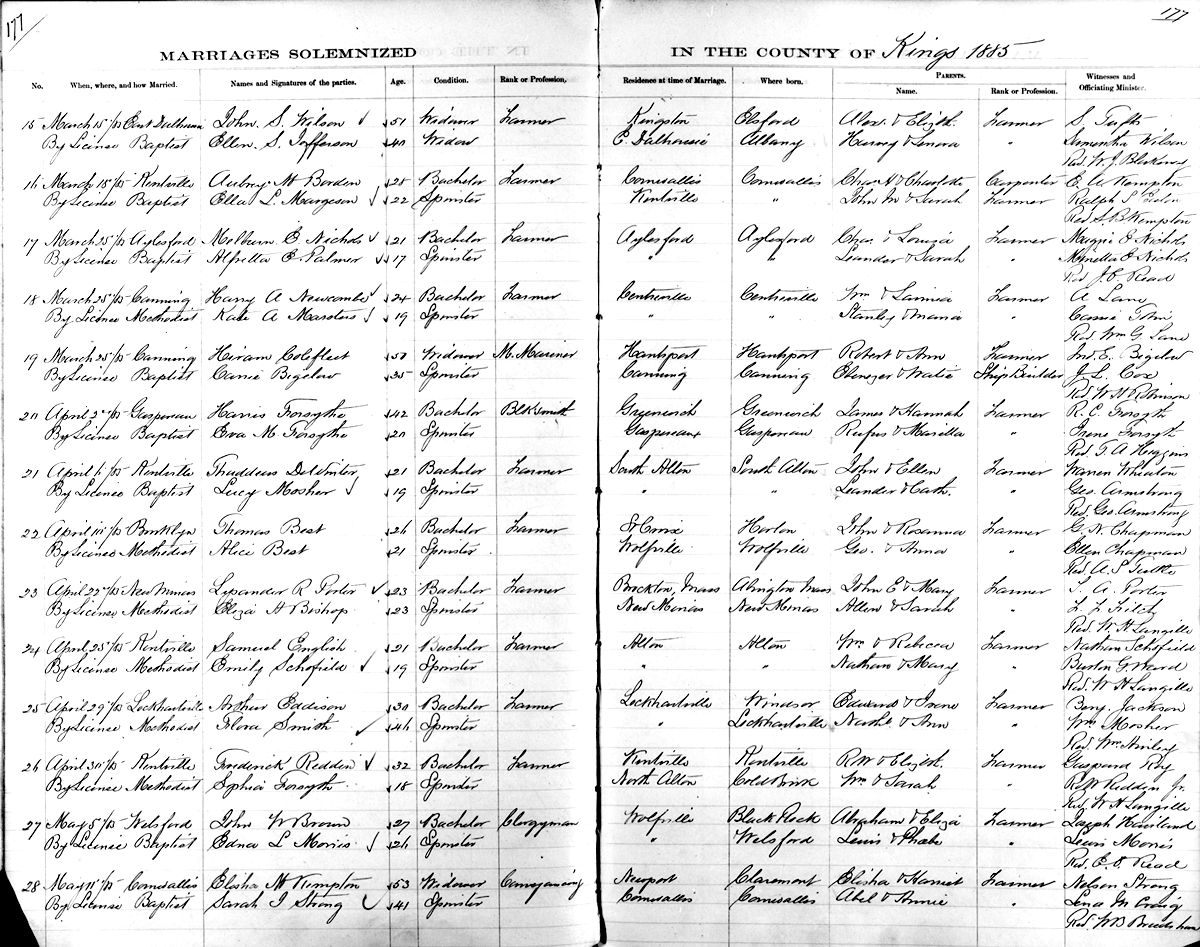 177
177
MARRIAGES SOLEMNIZED IN THE COUNTY OF Kings 1885
No. When, where, and how Married. Names and Signatures of the parties. Age. Condition. Rank or Profession, Residence at time of Marriage. Where born. PARENTS. Name. Rank or Profession. Witnesses and Officiating Minister.
15 March 15/85 East Dalhousie John. S. Wilson 51 Widower Farmer Kingston Elsford Alex. & Elizth. Farmer S. Tufts
By License Baptist Ellen. S. Jefferson 40 Widow E. Dalhousie Albany Harvey & Lenora " Samantha Wilson
Rev. W. J.
16 March 18/85 Kentville Aubrey H Borden 28 Bachelor Farmer Cornwallis Cornwallis Chas H & Charlotte Carpenter E. A Kempton
By License Baptist Ella L. Margeson 22 Spinster Kentville " John W & Sarah Farmer Ralph S Eaton
Rev S. B. Kempton
17 March 25/85 Aylesford Melburn E Nichols 21 Bachelor Farmer Aylesford Aylesford Chas. & Louiza Farmer Maggie E Nichols
By License Baptist Alfretta E. Palmer 17 Spinster " " Leander & Sarah " E Nichols
Rev J. E. Read
18 March 25/85 Canning Harry A Newcombe 24 Bachelor Farmer Centreville Centreville Wm & Lavinia Farmer A Lane
By License Methodist Kate A Masters 19 Spinster " " Stanley & Maria " Cassie
Rev. Wm G. Lane
19 March 25/85 Canning Hiram Colefleet 50 Widower M. Mariner Hantsport Hantsport Robert & Ann Farmer Jno. E. Bigelow
By License Baptist Carrie Bigelow 35 Spinster Canning Canning Ebenezer & Watie Ship Builder J. L. Cox
Rev. W. H Robinson
20 April 2nd/85 Gaspereau Harris Forsythe 42 Bachelor Blksmith Greenwich Greenwich James & Hannah Farmer R. C. Forsyth
By License Baptist Eva M. Forsythe 20 Spinster Gaspereaux Gaspereau Rufus & Marilla " Irene Forsyth
Rev. T. A Higgins
21 April 6/85 Kentville Thaddeus DeWitter 21 Bachelor Farmer South Alton South Alton John & Ellen Farmer Warren Wheaton
By License Baptist Lucy Mosher 19 Spinster " " Leander & Cath. " Geo. Armstrong
Rev. Geo. Armstrong
22 April 10/85 Brooklyn Thomas Best 26 Bachelor Farmer St Croix Horton John & Rosanna Farmer G. W. Chapman
By License Methodist Alice Best 21 Spinster Wolfville Wolfville Geo. & Anna " Ellen Chapman
Rev. A. S. Tuttle
23 April 22nd/85 New Minas Lysander R Porter 23 Bachelor Farmer Brockton, Mass Abington Mass John E & Mary Farmer L. A. Porter
By License Methodist Eliza A Bishop 23 Spinster New Minas New Minas Allen & Sarah " L. L Fitch
Rev. W. H Langille
24 April 25/85 Kentville Samuel English 21 Bachelor Farmer Alton Alton Wm & Rebecca Farmer Nathan Schofield
By License Methodist Emily Schofield 19 Spinster " " Nathan & Mary " Burton G. Ward
Rev. W H Langille
25 April 29/85 Lockhartville Arthur Eddison 30 Bachelor Farmer Lockhartville Windsor Edward & Irene Farmer Benj. Jackson
By License Methodist Flora Smith 46 Spinster " Lockhartville Nathl & Ann " Wm Mosher
Rev Wm Ainley
26 April 30/85 Kentville Frederick Redden 32 Bachelor Farmer Kentville Kentville R W & Elizth. Farmer Gaspard Key
By License Methodist Sophia Forsyth 18 Spinster North Alton Coldbrook Wm & Sarah " R W Redden Jr.
Rev. W H Langille
27 May 5/85 Welsford John W Brown 27 Bachelor Clergyman Wolfville Black Rock Abraham & Eliza Farmer Joseph Haviland
By License Baptist Edna L Morris 26 Spinster " Welsford Lewis & Phoebe " Lewis Morris
Rev. E. O. Read
28 May 11/85 Cornwallis Elisha H Kempton 53 Widower Conveyancing Newport Claremont Elisha & Harriet Farmer Nelson Strong
By License Baptist Sarah I Strong 41 Spinster Cornwallis Cornwallis Abel & Annie " Lena M Craig
Rev. W B Bradshaw